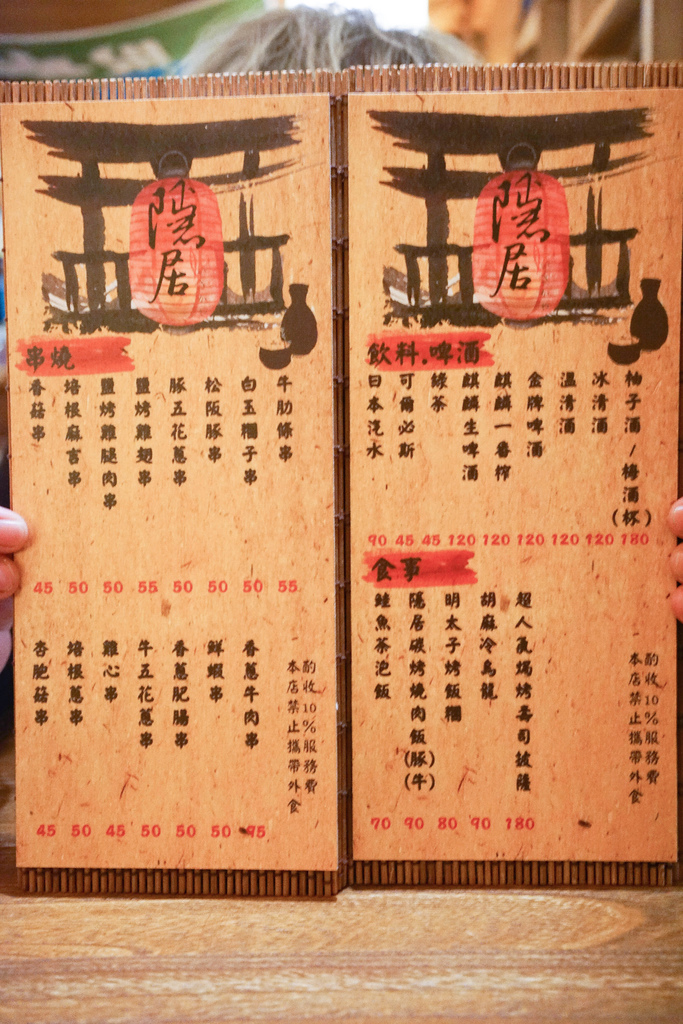 隱居
串燒
牛肋條串
白玉糰子串
松阪豚串
豚五花蔥串
鹽烤雞翅串
鹽烤雞腿肉串
培根麻吉串
香菇串
45 50 50 55 50 50 50 55
香蔥牛肉串
鮮蝦串
香蔥肥腸串
牛五花蔥串
雞心串
培根蔥串
杏鮑菇串
45 50 45 50 50 50 95
酌收10%服務費
本店禁止攜帶外食
隱居
飲料.啤酒
柚子酒/梅酒(杯)
冰清酒
溫清酒
金牌啤酒
麒麟一番搾
麒麟生啤酒
綠茶
可爾必斯
日本汽水
90 45 45 120 120 120 120 120 180
食事
超人氣焗烤壽司披薩
胡麻冷烏龍
明太子烤飯糰
隱居碳烤燒肉飯(豚)(牛)
鮭魚茶泡飯
70 90 80 90 180
酌收10%服務費
本店禁止攜帶外食